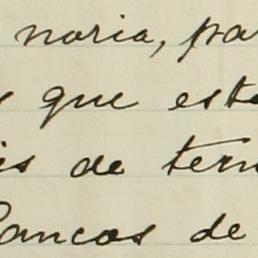 noria, pa
que est
is de tern
Bancos de